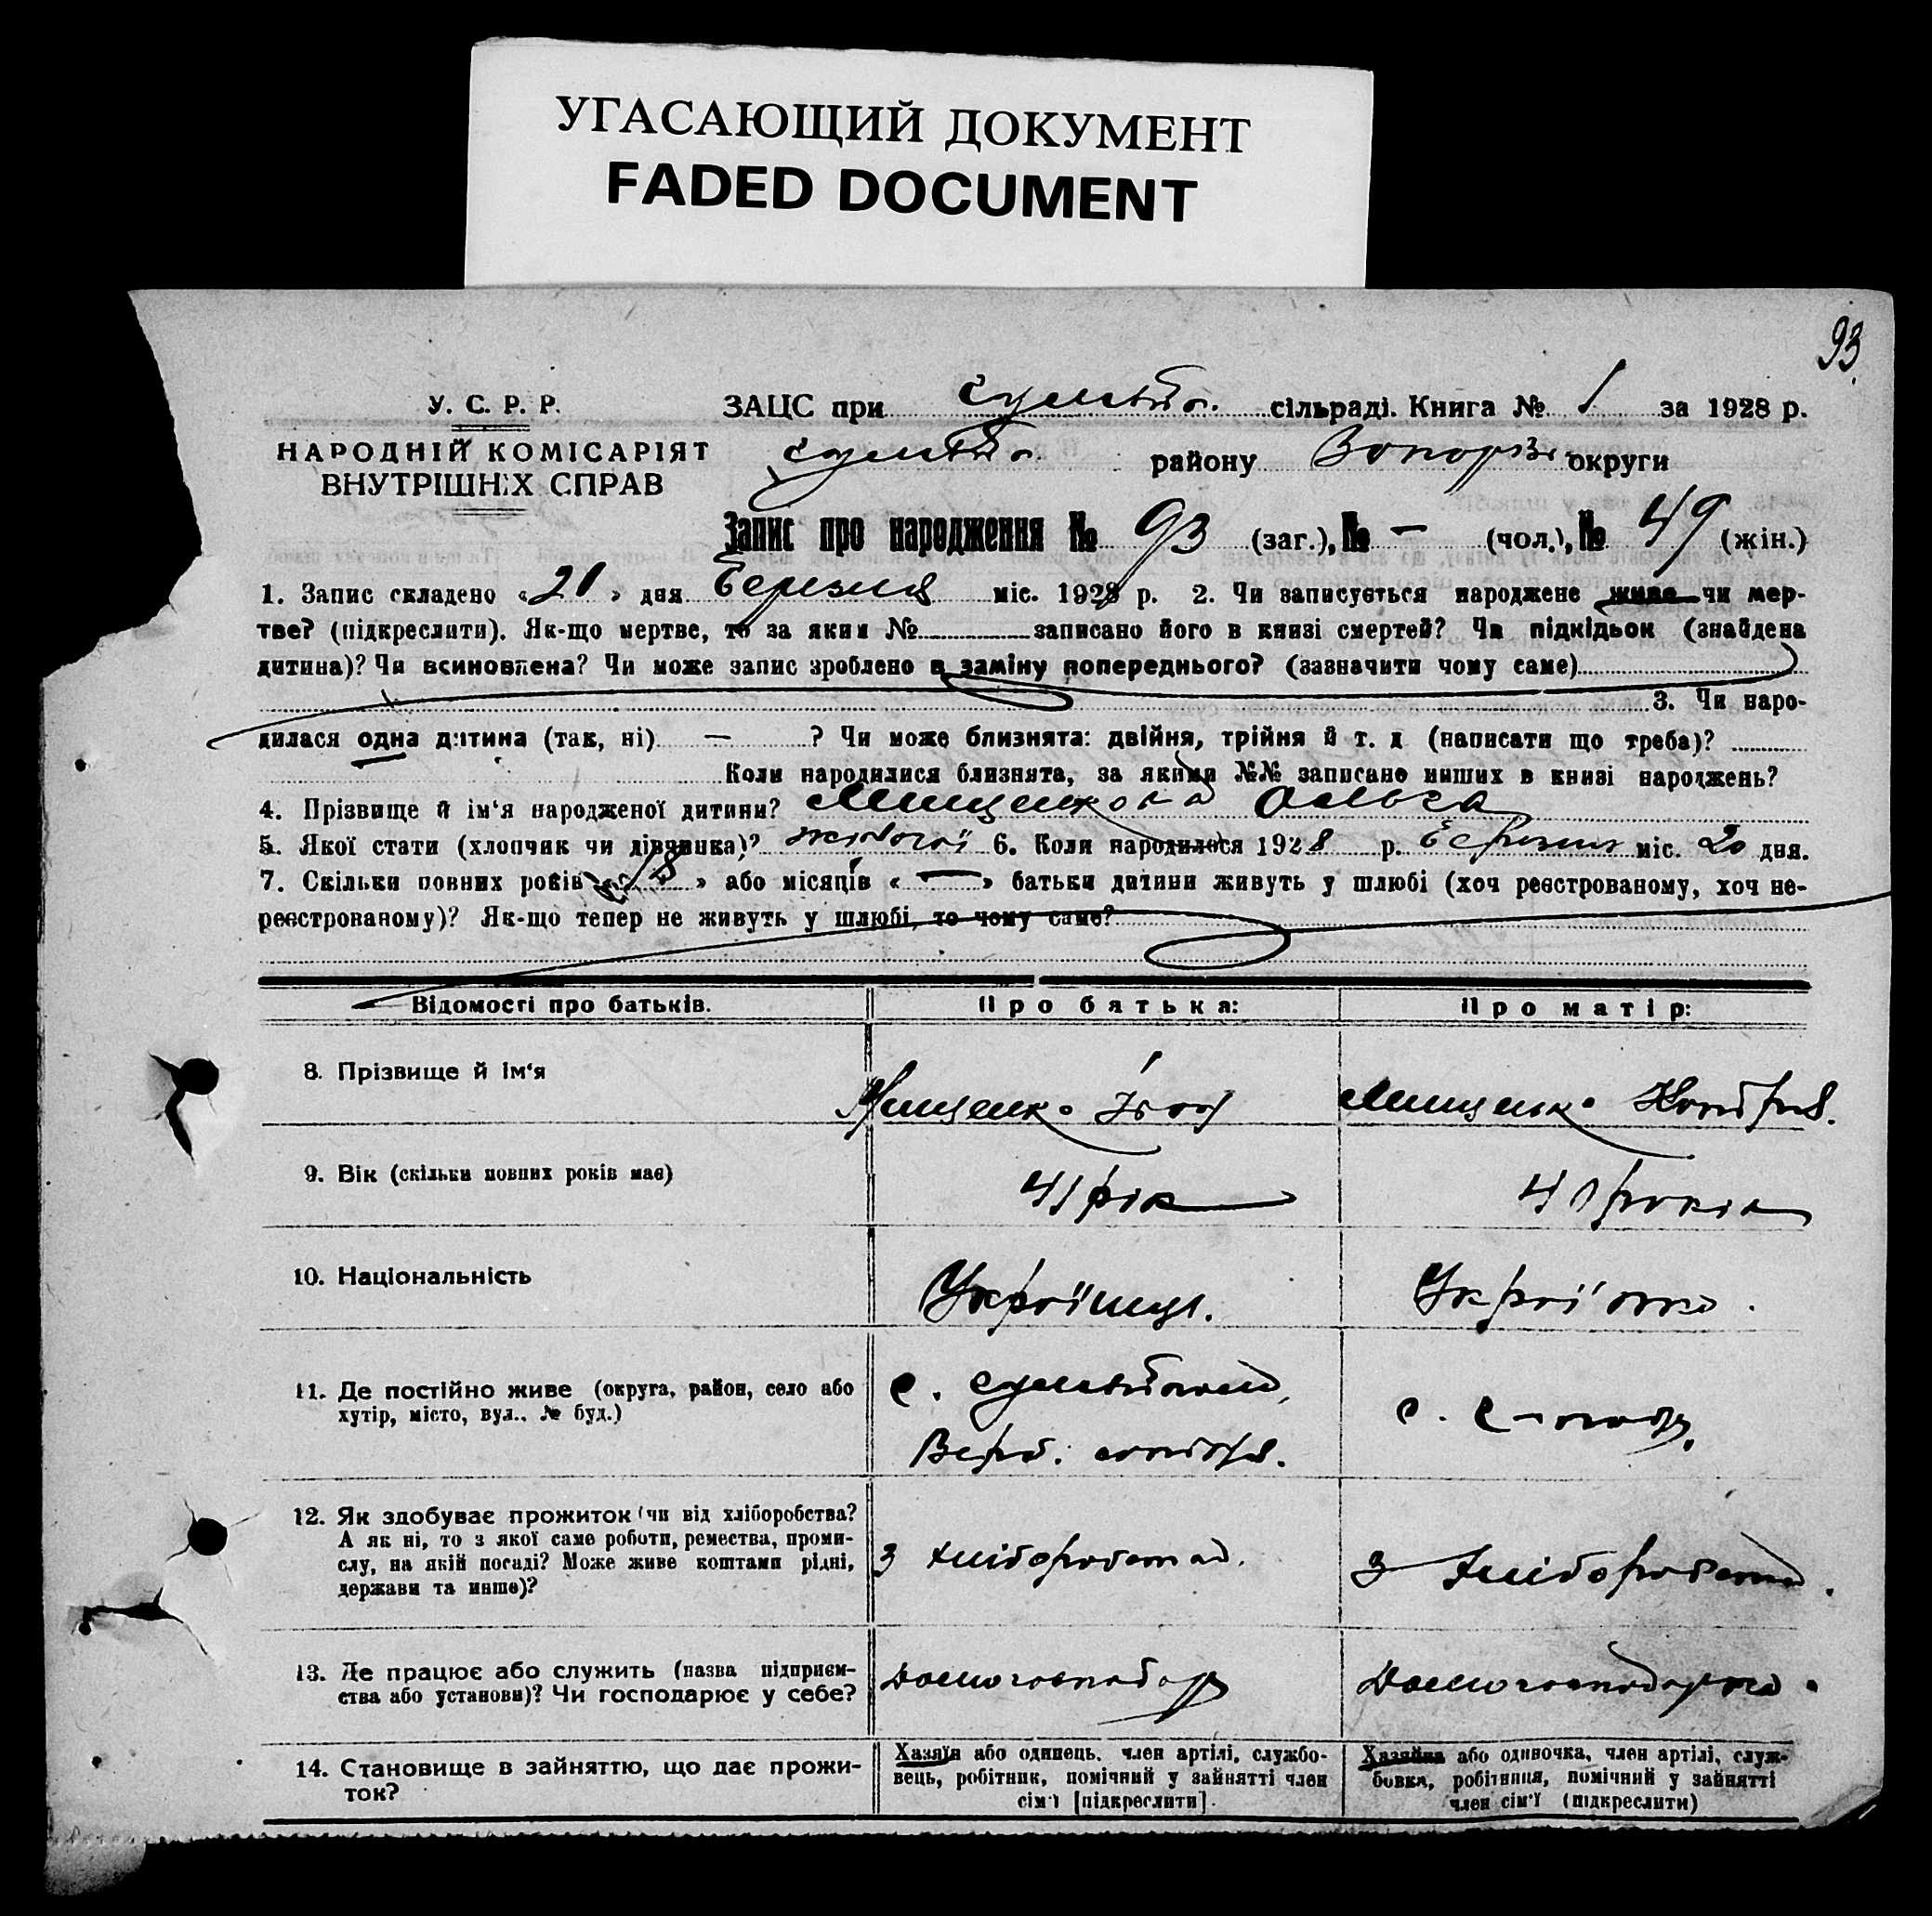 УГАСАЮЩИЙ ДОКУМЕНТ
FADED DOCUMENT
93
У. С. Р. Р.
НАРОДНІЙ КОМІСАРІЯТ
ВНУТРІШНІХ СПРАВ
ЗАЦС при сільраді. Книга № 1 за 1928 р.
району округи
Запис про народження № 93 (заг.), № — (чол.), № 49 (жін.)
1. Запис складено «21» дня Березня міс. 1928 р. 2. Чи записується народжене живе чи мер-
тве? (підкреслити). Як-що мертве, то за яким № записано його в книзі смертей? Чи підкідьок (знайдена
дитина)? Чи всиновлена? Чи може запис зроблено в заміну попереднього? (зазначити чому саме)
3. Чи наро-
дилася одна дитина (так, ні) — ? Чи може близнята: двійня, трійня й т. д (написати що треба)?
Коли народилися близнята, за якими №№ записано инших в книзі народжень?
4. Прізвище й ім'я народженої дитини? Мищенкова Ольга
5. Якої стати (хлопчик чи дівчинка)? жіночої 6. Коли народилося 1928 р. Березня міс. 20 дня.
7. Скільки повних років « » або місяців « — » батьки дитини живуть у шлюбі (хоч реєстрованому, хоч не-
реєстрованому)? Як-що тепер не живуть у шлюбі, то чому саме?
Відомості про батьків. Про батька: Про матір:
8. Прізвище й ім'я Мищенко Іван Мищенко
9. Вік (скільки повних років має) 41 рік 40 років
10. Національність Українец. Українка.
11. Де постійно живе (округа, район, село або
хутір, місто, вул.. № буд.)
с.
с.
12. Як здобуває прожиток (чи від хліборобства?
А як ні, то з якої саме роботи, ремества, проми-
слу, на якій посаді? Може живе коштами рідні,
держави та инше)?
з хліборобства.
з хліборобства.
13. Де працює або служить (назва підприєм-
ства або установи)? Чи господарює у себе?
Домогосподар
Домогосподарка.
14. Становище в зайняттю, що дає прожи-
ток?
Хазяїн або одинець, член артілі, службо-
вець, робітник, помічний у зайнятті член
сім'ї [підкреслити].
Хазяйка або одиночка, член артілі, служ-
бовка, робітниця, помічний у зайнятті
член сім'ї (підкреслити)